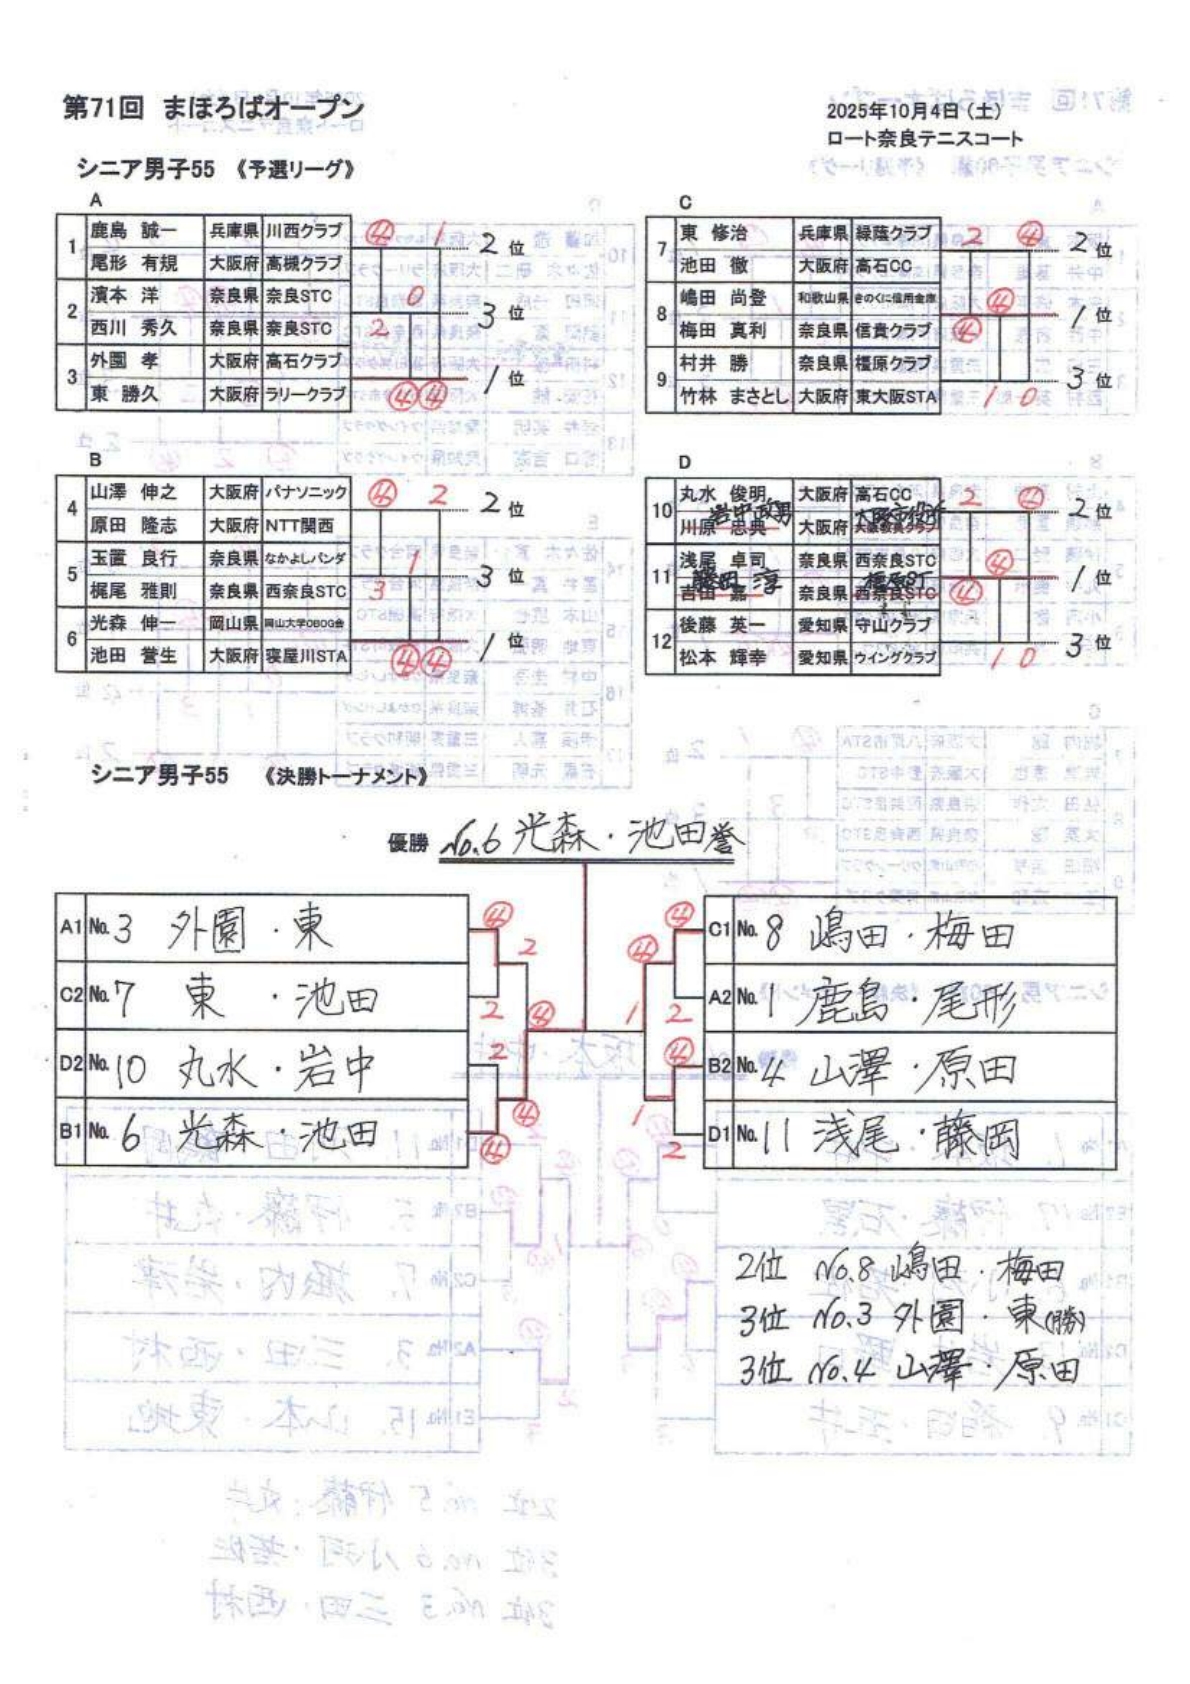 第71回 まほろばオープン
2025年10月4日（土）
ロート奈良テニスコート
シニア男子55 《予選リーグ》
A
1 鹿島 誠一 兵庫県 川西クラブ ④ 1 2位
尾形 有規 大阪府 高槻クラブ
2 濱本 洋 奈良県 奈良STC 0 3位
西川 秀久 奈良県 奈良STC 2
3 外園 孝 大阪府 高石クラブ 1位
東 勝久 大阪府 ラリークラブ ④ ④
B
4 山澤 伸之 大阪府 パナソニック ④ 2 2位
原田 隆志 大阪府 NTT関西
5 玉置 良行 奈良県 なかよしパンダ 1 3位
梶尾 雅則 奈良県 西奈良STC 3
6 光森 伸一 岡山県 岡山大学OBOG会 1位
池田 誉生 大阪府 寝屋川STA ④ ④
C
7 東 修治 兵庫県 緑蔭クラブ 2 ④ 2位
池田 徹 大阪府 高石CC
8 嶋田 尚登 和歌山県 きのくに信用金庫 ④ 1位
梅田 真利 奈良県 信貴クラブ ④
9 村井 勝 奈良県 橿原クラブ 3位
竹林 まさとし 大阪府 東大阪STA 1 0
D
10 丸水 俊明 大阪府 高石CC 2 ④ 2位
岩中政男 大阪市役所
川原 忠典 大阪府
11 浅尾 卓司 奈良県 西奈良STC ④ 1位
藤岡 淳
吉田 嘉 奈良県 西奈良STC ④
12 後藤 英一 愛知県 守山クラブ 3位
松本 輝幸 愛知県 ウイングクラブ 1 0
シニア男子55 《決勝トーナメント》
優勝 No.6 光森・池田誉
A1 No.3 外園・東 ④
2
C2 No.7 東・池田 2
④
D2 No.10 丸水・岩中 2
④
B1 No.6 光森・池田 ④
C1 No.8 嶋田・梅田 ④
④
A2 No.1 鹿島・尾形 2
1
B2 No.4 山澤・原田 ④
1
D1 No.11 浅尾・藤岡 2
2位 No.8 嶋田・梅田
3位 No.3 外園・東(勝)
3位 No.4 山澤・原田